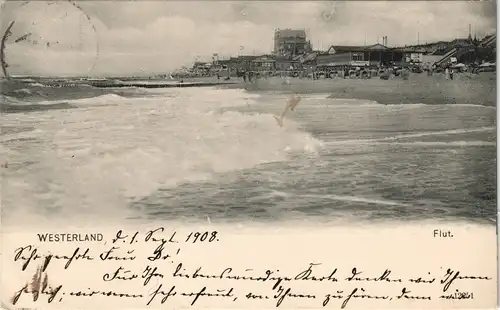 WESTERLAND, d. 1. Sept. 1908. Flut.
Sehr geehrte Frau Dr!
Für Ihre liebenswürdige Karte danken wir Ihnen
herzl., wir waren sehr erfreut, von Ihnen zu hören, denn